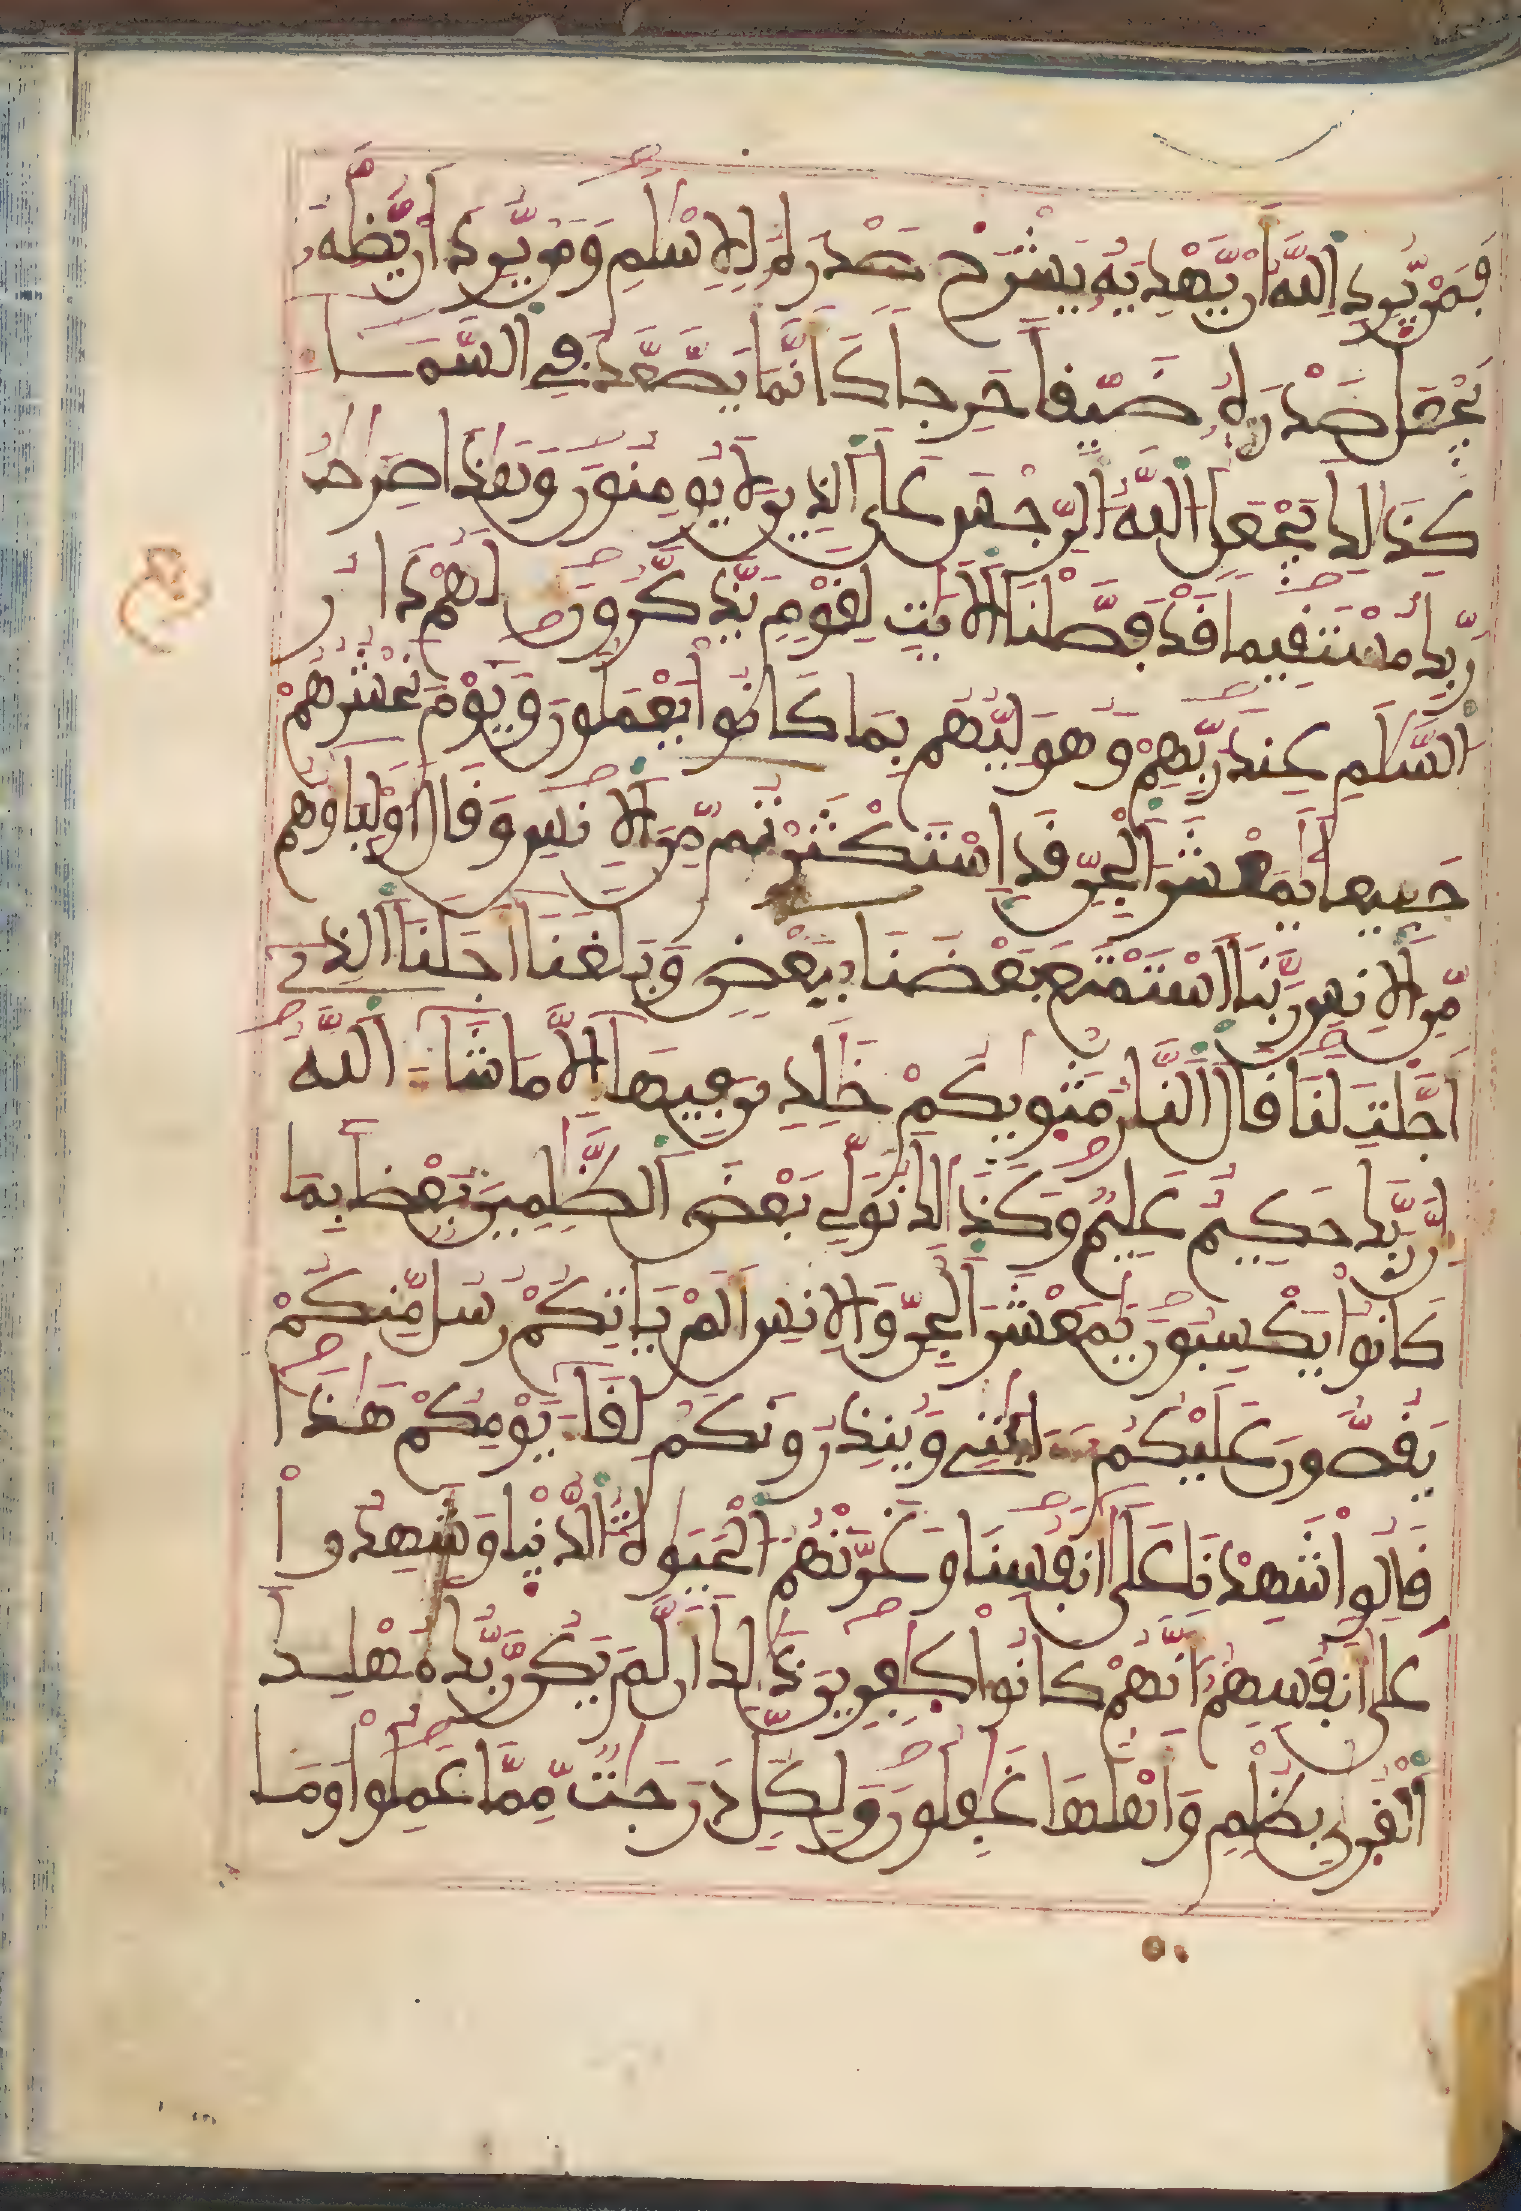 فَمَنْ يُّرِدِ اِ۬للَّهُ أَنْ يَّهْدِيَهُۥ يَشْرَحْ صَدْرَهُۥ لِلِاسْلَٰمِ وَمَنْ يُّرِدَ اَنْ يُّضِلَّهُۥ
يَجْعَلْ صَدْرَهُۥ ضَيِّقاً حَرِجاً كَأَنَّمَا يَصَّعَّدُ فِے اِ۬لسَّمَا
كَذَٰلِكَ يَجْعَلُ اُ۬للَّهُ اُ۬لرِّجْسَ عَلَي اَ۬لذِينَ لَا يُومِنُونَ وَهَٰذَا صِرَٰطُ
رَبِّكَ مُسْتَقِيماً قَدْ فَصَّلْنَا اَ۬لَايَٰتِ لِقَوْمٍ يَذَّكَّرُونَ لَهُمْ دَارُ
اُ۬لسَّلَٰمِ عِندَ رَبِّهِمْ وَهُوَ وَلِيُّهُم بِمَا كَانُواْ يَعْمَلُونَ وَيَوْمَ نَحْشُرُهُمْ
جَمِيعاً يَٰمَعْشَرَ اَ۬لْجِنِّ قَدِ اِ۪سْتَكْثَرْتُم مِّنَ اَ۬لِانسِ وَقَالَ أَوْلِيَاؤُهُم
مِّنَ اَ۬لِانسِ رَبَّنَا اَ۪سْتَمْتَعَ بَعْضُنَا بِبَعْضٍ وَبَلَغْنَا أَجَلَنَا اَ۬لذِے
أَجَّلْتَ لَنَا قَالَ اَ۬لنَّارُ مَثْو۪يٰكُمْ خَٰلِدِينَ فِيهَا إِلَّا مَا شَاءَ اَ۬للَّهُ
إِنَّ رَبَّكَ حَكِيمٌ عَلِيمٌ وَكَذَٰلِكَ نُوَلِّے بَعْضَ اَ۬لظَّٰلِمِينَ بَعْضاً بِمَا
كَانُواْ يَكْسِبُونَ يَٰمَعْشَرَ اَ۬لْجِنِّ وَالِانسِ أَلَمْ يَاتِكُمْ رُسُلٌ مِّنكُمْ
يَقُصُّونَ عَلَيْكُمُ ءَايَٰتِے وَيُنذِرُونَكُمْ لِقَاءَ يَوْمِكُمْ هَٰذَا
قَالُواْ شَهِدْنَا عَلَىٰ أَنفُسِنَا وَغَرَّتْهُمُ اُ۬لْحَيَوٰةُ اُ۬لدُّنْيَا وَشَهِدُواْ
عَلَىٰ أَنفُسِهِمُ أَنَّهُمْ كَانُواْ كَٰفِرِينَ ذَٰلِكَ أَن لَّمْ يَكُن رَّبُّكَ مُهْلِكَ
اَ۬لْقُر۪يٰ بِظُلْمٍ وَأَهْلُهَا غَٰفِلُونَ وَلِكُلٍّ دَرَجَٰتٌ مِّمَّا عَمِلُواْ وَمَا